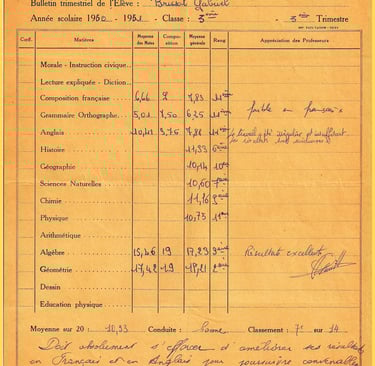 Bulletin trimestriel de l'Elève : Brissot Gabriel
Année scolaire 1950 - 1951 - Classe : 3ème 3ème Trimestre
Coef. Matières Moyenne des Notes Compo- sition Moyenne générale Rang Appréciation des Professeurs
Morale - Instruction civique
Lecture expliquée - Diction
Composition française 6,66 9 7,83 11ème faible en français
Grammaire Orthographe 5,01 7,50 6,25 11ème
Anglais 10,41 3,75 7,88 11ème Le travail a été irrégulier et insuffisant
Histoire 11,33 6ème
Géographie 10,14 10ème
Sciences Naturelles 10,60 7ème
Chimie 11,76 3ème
Physique 10,73 11ème
Arithmétique
Algèbre 15,46 19 17,23 3ème Résultats excellents
Géométrie 17,42 19 18,21 2ème
Dessin
Education physique
Moyenne sur 20 : 10,93 Conduite : bonne Classement : 7e sur 14
Doit absolument s'efforcer d'améliorer ses résultats
en Français et en Anglais pour poursuivre convenablement